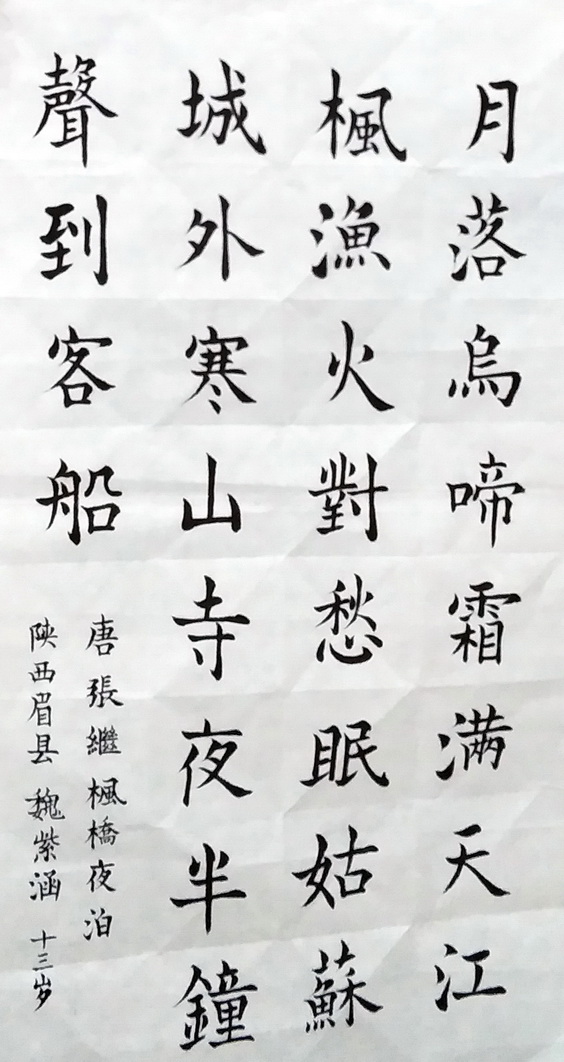 月落烏啼霜满天江
楓漁火對愁眠姑蘇
城外寒山寺夜半鐘
聲到客船
唐張繼楓橋夜泊
陕西眉县 魏紫涵 十三岁